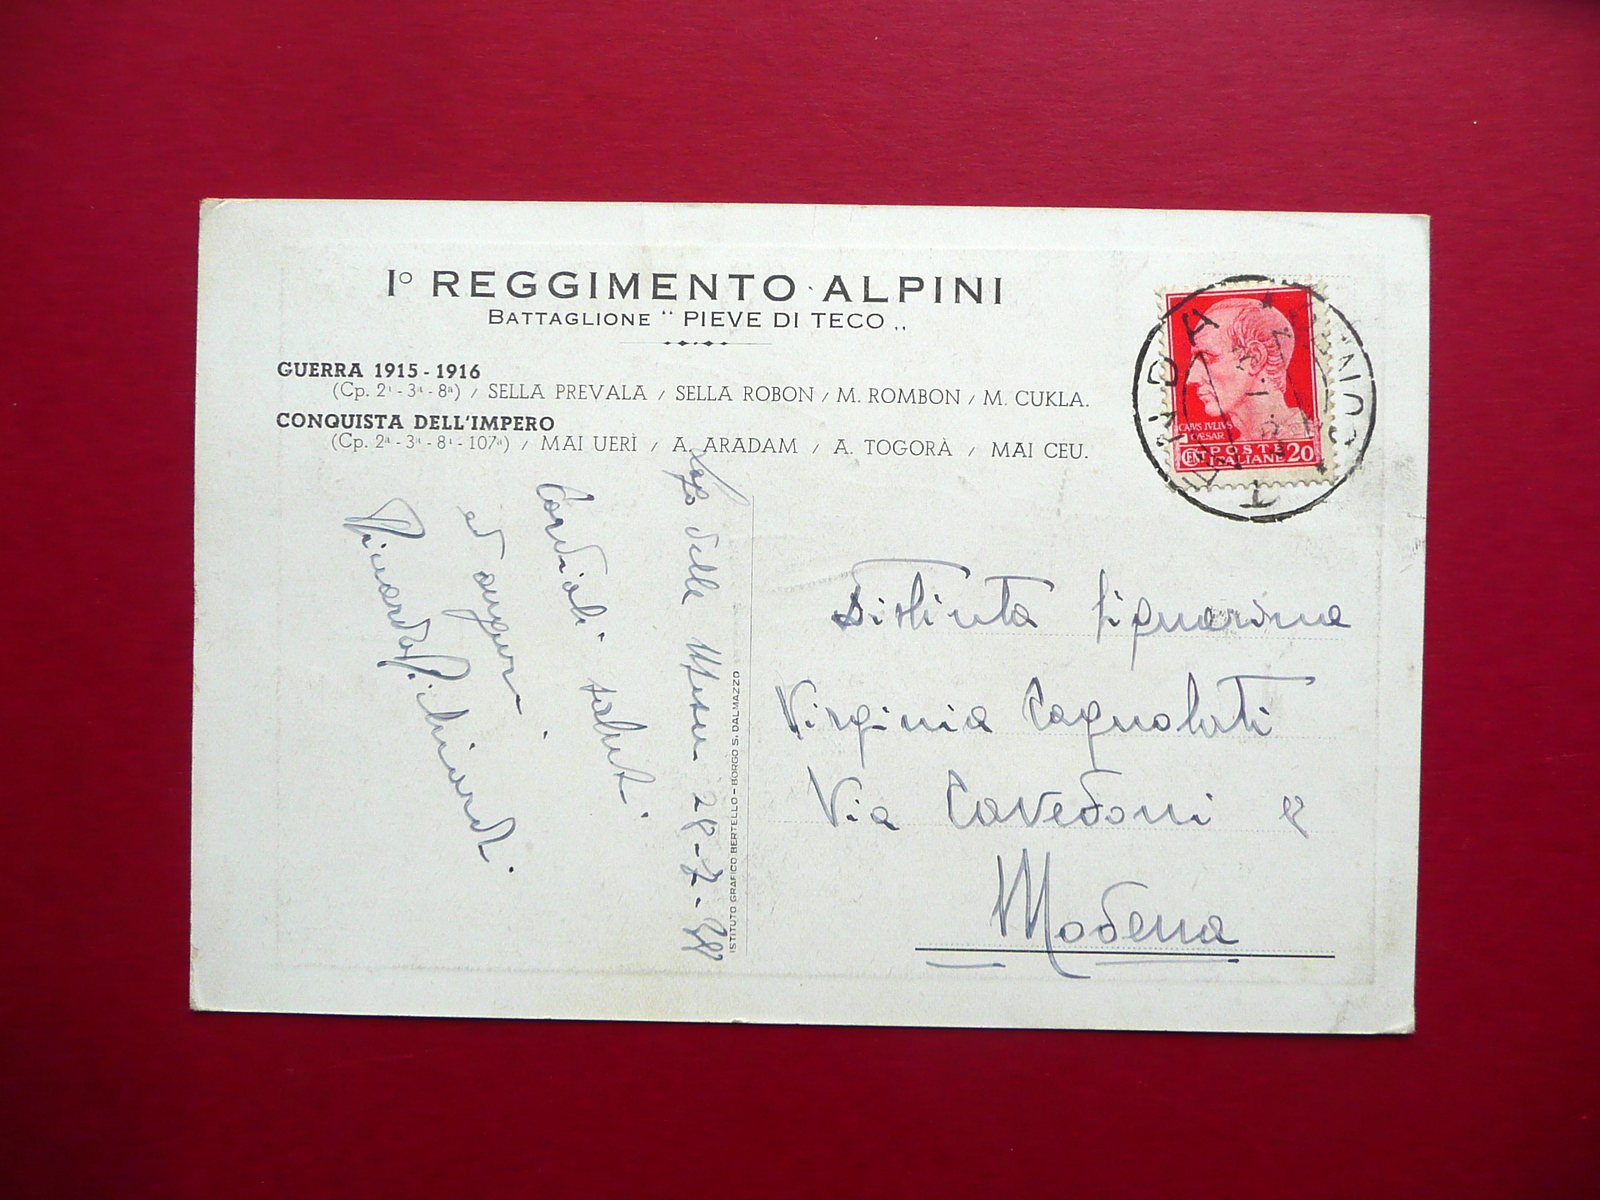 Iº REGGIMENTO ALPINI
BATTAGLIONE " PIEVE DI TECO „
GUERRA 1915 - 1916
(Cp. 2ª - 3ª - 8ª) / SELLA PREVALA / SELLA ROBON / M. ROMBON / M. CUKLA.
CONQUISTA DELL'IMPERO
(Cp. 2ª - 3ª - 8ª - 107ª) / MAI UERÌ / A. ARADAM / A. TOGORÀ / MAI CEU.
CAIVS IVLIVS
CAESAR
CENT POSTE
ITALIANE 20
delle 28-7-38
Cordiali saluti.
ed auguri
Distinta Signorina
Virginia Cagnolati
Via Cavedoni 8
Modena
ISTITUTO GRAFICO BERTELLO - BORGO S. DALMAZZO